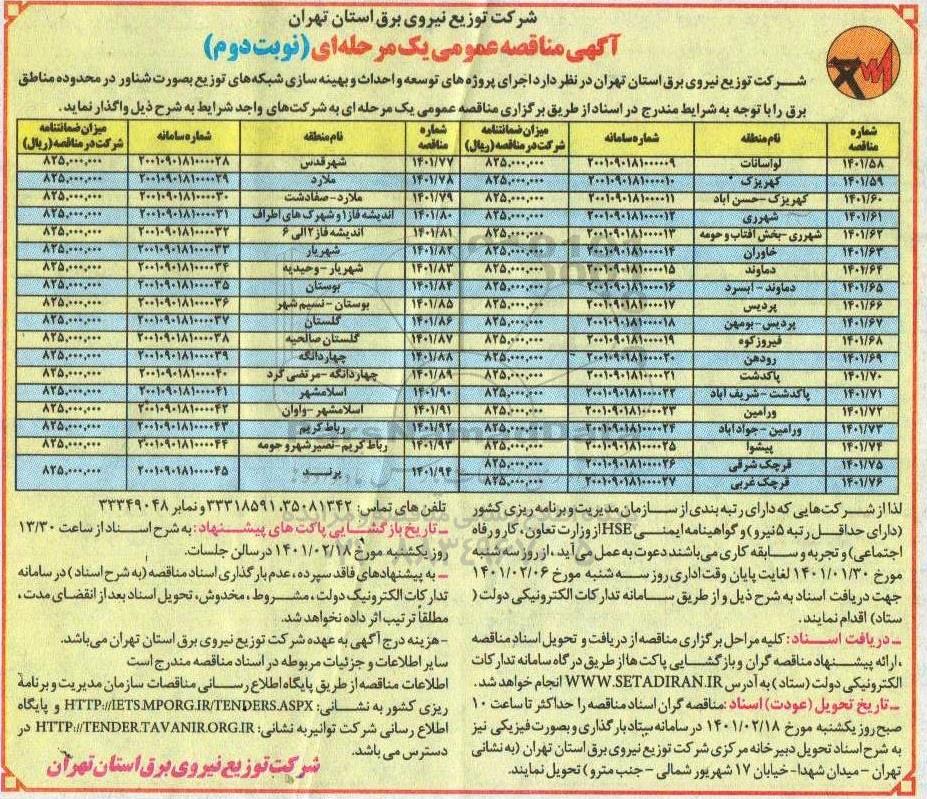 شرکت توزیع نیروی برق استان تهران
آگهی مناقصه عمومی یک مرحله‌ای (نوبت دوم)
شرکت توزیع نیروی برق استان تهران در نظر دارد اجرای پروژه های توسعه و احداث و بهینه سازی شبکه های توزیع بصورت شناور در محدوده مناطق
برق را با توجه به شرایط مندرج در اسناد از طریق برگزاری مناقصه عمومی یک مرحله ای به شرکت های واجد شرایط به شرح ذیل واگذار نماید.
شماره مناقصه نام منطقه شماره سامانه میزان ضمانتنامه شرکت در مناقصه (ریال) شماره مناقصه نام منطقه شماره سامانه میزان ضمانتنامه شرکت در مناقصه (ریال)
۱۴۰۱/۵۸ لواسانات ۲۰۰۱۰۹۰۱۸۱۰۰۰۰۰۹ ۸۲۵,۰۰۰,۰۰۰ ۱۴۰۱/۷۷ شهرقدس ۲۰۰۱۰۹۰۱۸۱۰۰۰۰۲۸ ۸۲۵,۰۰۰,۰۰۰
۱۴۰۱/۵۹ کهریزک ۲۰۰۱۰۹۰۱۸۱۰۰۰۰۱۰ ۸۲۵,۰۰۰,۰۰۰ ۱۴۰۱/۷۸ ملارد ۲۰۰۱۰۹۰۱۸۱۰۰۰۰۲۹ ۸۲۵,۰۰۰,۰۰۰
۱۴۰۱/۶۰ کهریزک -حسن آباد ۲۰۰۱۰۹۰۱۸۱۰۰۰۰۱۱ ۸۲۵,۰۰۰,۰۰۰ ۱۴۰۱/۷۹ ملارد-صفادشت ۲۰۰۱۰۹۰۱۸۱۰۰۰۰۳۰ ۸۲۵,۰۰۰,۰۰۰
۱۴۰۱/۶۱ شهرری ۲۰۰۱۰۹۰۱۸۱۰۰۰۰۱۲ ۸۲۵,۰۰۰,۰۰۰ ۱۴۰۱/۸۰ اندیشه فاز۱ و شهرک های اطراف ۲۰۰۱۰۹۰۱۸۱۰۰۰۰۳۱ ۸۲۵,۰۰۰,۰۰۰
۱۴۰۱/۶۲ شهرری -بخش آفتاب و حومه ۲۰۰۱۰۹۰۱۸۱۰۰۰۰۱۳ ۸۲۵,۰۰۰,۰۰۰ ۱۴۰۱/۸۱ اندیشه فاز ۲ الی ۶ ۲۰۰۱۰۹۰۱۸۱۰۰۰۰۳۲ ۸۲۵,۰۰۰,۰۰۰
۱۴۰۱/۶۳ خاوران ۲۰۰۱۰۹۰۱۸۱۰۰۰۰۱۴ ۸۲۵,۰۰۰,۰۰۰ ۱۴۰۱/۸۲ شهریار ۲۰۰۱۰۹۰۱۸۱۰۰۰۰۳۳ ۸۲۵,۰۰۰,۰۰۰
۱۴۰۱/۶۴ دماوند ۲۰۰۱۰۹۰۱۸۱۰۰۰۰۱۵ ۸۲۵,۰۰۰,۰۰۰ ۱۴۰۱/۸۳ شهریار - وحیدیه ۲۰۰۱۰۹۰۱۸۱۰۰۰۰۳۴ ۸۲۵,۰۰۰,۰۰۰
۱۴۰۱/۶۵ دماوند - آبسرد ۲۰۰۱۰۹۰۱۸۱۰۰۰۰۱۶ ۸۲۵,۰۰۰,۰۰۰ ۱۴۰۱/۸۴ بوستان ۲۰۰۱۰۹۰۱۸۱۰۰۰۰۳۵ ۸۲۵,۰۰۰,۰۰۰
۱۴۰۱/۶۶ پردیس ۲۰۰۱۰۹۰۱۸۱۰۰۰۰۱۷ ۸۲۵,۰۰۰,۰۰۰ ۱۴۰۱/۸۵ بوستان - نسیم شهر ۲۰۰۱۰۹۰۱۸۱۰۰۰۰۳۶ ۸۲۵,۰۰۰,۰۰۰
۱۴۰۱/۶۷ پردیس-بومهن ۲۰۰۱۰۹۰۱۸۱۰۰۰۰۱۸ ۸۲۵,۰۰۰,۰۰۰ ۱۴۰۱/۸۶ گلستان ۲۰۰۱۰۹۰۱۸۱۰۰۰۰۳۷ ۸۲۵,۰۰۰,۰۰۰
۱۴۰۱/۶۸ فیروزکوه ۲۰۰۱۰۹۰۱۸۱۰۰۰۰۱۹ ۸۲۵,۰۰۰,۰۰۰ ۱۴۰۱/۸۷ گلستان صالحیه ۲۰۰۱۰۹۰۱۸۱۰۰۰۰۳۸ ۸۲۵,۰۰۰,۰۰۰
۱۴۰۱/۶۹ رودهن ۲۰۰۱۰۹۰۱۸۱۰۰۰۰۲۰ ۸۲۵,۰۰۰,۰۰۰ ۱۴۰۱/۸۸ چهاردانگه ۲۰۰۱۰۹۰۱۸۱۰۰۰۰۳۹ ۸۲۵,۰۰۰,۰۰۰
۱۴۰۱/۷۰ پاکدشت ۲۰۰۱۰۹۰۱۸۱۰۰۰۰۲۱ ۸۲۵,۰۰۰,۰۰۰ ۱۴۰۱/۸۹ چهاردانگه -مرتضی گرد ۲۰۰۱۰۹۰۱۸۱۰۰۰۰۴۰ ۸۲۵,۰۰۰,۰۰۰
۱۴۰۱/۷۱ پاکدشت - شریف آباد ۲۰۰۱۰۹۰۱۸۱۰۰۰۰۲۲ ۸۲۵,۰۰۰,۰۰۰ ۱۴۰۱/۹۰ اسلامشهر ۲۰۰۱۰۹۰۱۸۱۰۰۰۰۴۱ ۸۲۵,۰۰۰,۰۰۰
۱۴۰۱/۷۲ ورامین ۲۰۰۱۰۹۰۱۸۱۰۰۰۰۲۳ ۸۲۵,۰۰۰,۰۰۰ ۱۴۰۱/۹۱ اسلامشهر -واوان ۲۰۰۱۰۹۰۱۸۱۰۰۰۰۴۲ ۸۲۵,۰۰۰,۰۰۰
۱۴۰۱/۷۳ ورامین - جوادآباد ۲۰۰۱۰۹۰۱۸۱۰۰۰۰۲۴ ۸۲۵,۰۰۰,۰۰۰ ۱۴۰۱/۹۲ رباط کریم ۲۰۰۱۰۹۰۱۸۱۰۰۰۰۴۳ ۸۲۵,۰۰۰,۰۰۰
۱۴۰۱/۷۴ پیشوا ۲۰۰۱۰۹۰۱۸۱۰۰۰۰۲۵ ۸۲۵,۰۰۰,۰۰۰ ۱۴۰۱/۹۳ رباط کریم-نصیرشهر و حومه ۲۰۰۱۰۹۰۱۸۱۰۰۰۰۴۴ ۸۲۵,۰۰۰,۰۰۰
۱۴۰۱/۷۵ قرچک شرقی ۲۰۰۱۰۹۰۱۸۱۰۰۰۰۲۶ ۸۲۵,۰۰۰,۰۰۰ ۱۴۰۱/۹۴ پرنـد ۲۰۰۱۰۹۰۱۸۱۰۰۰۰۴۵ ۸۲۵,۰۰۰,۰۰۰
۱۴۰۱/۷۶ قرچک غربی ۲۰۰۱۰۹۰۱۸۱۰۰۰۰۲۷ ۸۲۵,۰۰۰,۰۰۰
لذا از شرکت هایی که دارای رتبه بندی از سازمان مدیریت و برنامه ریزی کشور
(دارای حداقل رتبه ۵ نیرو) و گواهینامه ایمنی HSE از وزارت تعاون، کار و رفاه
اجتماعی) و تجربه و سابقه کاری می باشند دعوت به عمل می آید، از روز سه شنبه
مورخ ۱۴۰۱/۰۱/۳۰ لغایت پایان وقت اداری روز سه شنبه مورخ ۱۴۰۱/۰۲/۰۶
جهت دریافت اسناد به شرح ذیل و از طریق سامانه تدارکات الکترونیکی دولت (
ستاد) اقدام نمایند.
ـ دریافت اسناد: کلیه مراحل برگزاری مناقصه از دریافت و تحویل اسناد مناقصه
، ارائه پیشنهاد مناقصه گران و بازگشایی پاکت ها از طریق درگاه سامانه تدارکات
الکترونیکی دولت (ستاد) به آدرس WWW.SETADIRAN.IR انجام خواهد شد.
ـ تاریخ تحویل (عودت) اسناد: مناقصه گران اسناد مناقصه را حداکثر تا ساعت ۱۰
صبح روز یکشنبه مورخ ۱۴۰۱/۰۲/۱۸ در سامانه ستاد بارگذاری و بصورت فیزیکی نیز
به شرح اسناد تحویل دبیرخانه مرکزی شرکت توزیع نیروی برق استان تهران (به نشانی
تهران - میدان شهدا- خیابان ۱۷ شهریور شمالی - جنب مترو) تحویل نمایند.
تلفن های تماس: ۳۵۰۸۱۳۴۲ ، ۳۳۳۱۸۵۹۱ و نمابر ۳۳۳۴۹۰۴۸
ـ تاریخ بازگشایی پاکت های پیشنهاد: به شرح اسناد از ساعت ۱۳/۳۰
روز یکشنبه مورخ ۱۴۰۱/۰۲/۱۸ در سالن جلسات.
ـ به پیشنهادهای فاقد سپرده، عدم بارگذاری اسناد مناقصه (به شرح اسناد) در سامانه
تدارکات الکترونیک دولت، مشروط، مخدوش، تحویل اسناد بعد از انقضای مدت،
مطلقاً ترتیب اثر داده نخواهد شد.
-هزینه درج آگهی به عهده شرکت توزیع نیروی برق استان تهران می باشد.
سایر اطلاعات و جزئیات مربوطه در اسناد مناقصه مندرج است
اطلاعات مناقصه از طریق پایگاه اطلاع رسانی مناقصات سازمان مدیریت و برنامه
ریزی کشور به نشانی: HTTP://IETS.MPORG.IR/TENDERS.ASPX و پایگاه
اطلاع رسانی شرکت توانیر به نشانی: HTTP://TENDER.TAVANIR.ORG.IR در
دسترس می باشد.
شرکت توزیع نیروی برق استان تهران